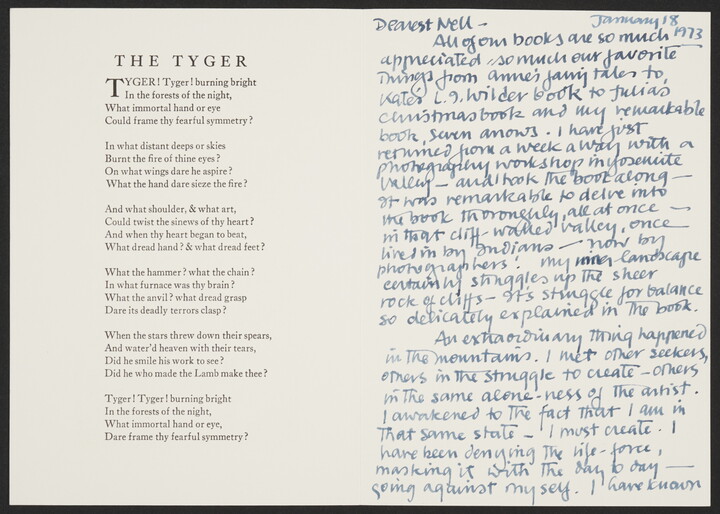 THE TYGER
TYGER! Tyger! burning bright
In the forests of the night,
What immortal hand or eye
Could frame thy fearful symmetry?
In what distant deeps or skies
Burnt the fire of thine eyes?
On what wings dare he aspire?
What the hand dare sieze the fire?
And what shoulder, & what art,
Could twist the sinews of thy heart?
And when thy heart began to beat,
What dread hand? & what dread feet?
What the hammer? what the chain?
In what furnace was thy brain?
What the anvil? what dread grasp
Dare its deadly terrors clasp?
When the stars threw down their spears,
And water'd heaven with their tears,
Did he smile his work to see?
Did he who made the Lamb make thee?
Tyger! Tyger! burning bright
In the forests of the night,
What immortal hand or eye,
Dare frame thy fearful symmetry?
January 18
1973
Dearest Nell -
All of our books are so much
appreciated, so much our favorite
things from Anne's fairy tales to
Kate's L.I. Wilder book to Julia's
Christmas book and my remarkable
book, Seven Arrows. I have just
returned from a week away with a
photography workshop in Yosemite
Valley - and took the book along -
It was remarkable to delve into
the book thoroughly, all at once -
in that cliff-walled valley, once
lived in by Indians - now by
photographers! My inner landscape
certainly struggles up the sheer
rock of cliffs - it's struggle for balance
so delicately explained in the book.
An extraordinary thing happened
in the mountains. I met other seekers,
others in the struggle to create - others
in the same alone-ness of the artist.
I awakened to the fact that I am in
that same state - I must create. I
have been denying the life-force,
masking it with the day to day -
going against my self. I have known